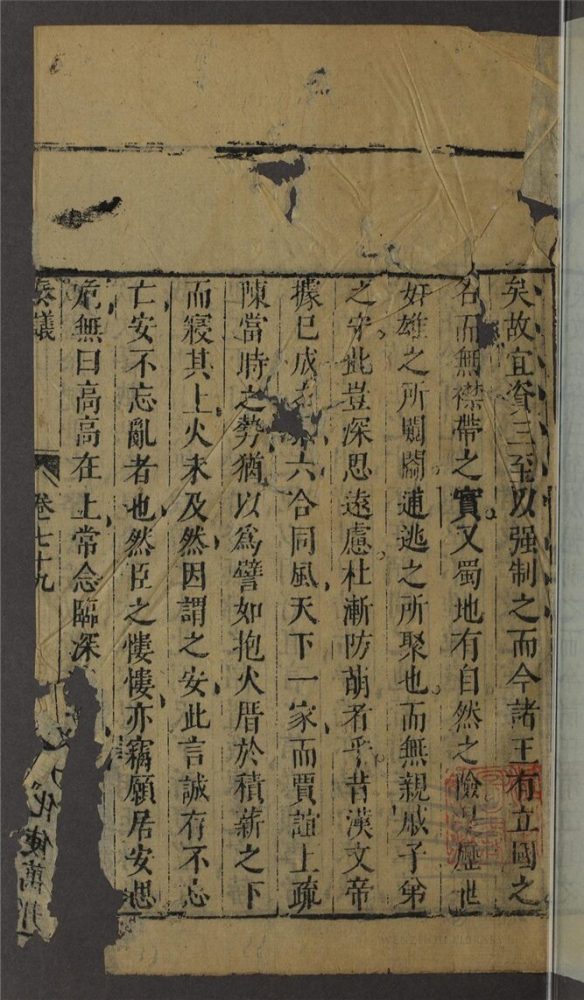 矣故宜資三至以强制之而今諸王有立國之
名而無襟帶之實又蜀地有自然之險歷世
奸雄之所闚閫逋逃之所聚也而無親戚子弟
之守此豈深思遠慮杜漸防萌者乎昔漢文帝
據已成六合同風天下一家而賈誼上疏
陳當時之勢猶以爲譬如抱火厝於積薪之下
而寢其上火未及然因謂之安此言誠存不忘
亡安不忘亂者也然臣之慺慺亦竊願居安思
危無曰高高在上常念臨深
奏議
卷七十九
化使萬